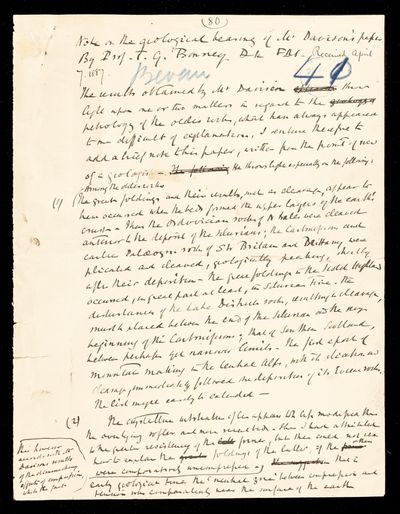 (80)
Note on the geological bearing of Mr Davison's paper
By Prof. T. G. Bonney D.Sc F.R.S. Received April
7. 1887.
Bevan
40
The results obtained by Mr Davison throw
light upon one or two matters in regard to the
petrology of the older rocks, which have always appeared
to me difficult of explanation. I venture therefore to
add a brief note to his paper, written from the point of view
of a geologist - He throws light especially on the following:
Among the older rocks
(1) The great foldings and their results, such as cleavage, appear to
have occurred when the beds formed the upper layers of the earth's
crust - Thus the Ordovician rocks of N Wales were cleaved
anterior to the deposit of the Silurians; the Carboniferous and
earlier Palæozoic rocks of S W Britain and Brittany were
plicated and cleaved, geologically speaking, shortly
after their deposition - The great foldings in the Scotch Highlands
occurred, in great part at least, in Silurian time. The
disturbances of the Lake District rocks, resulting in cleavage,
must be placed between the end of the Silurian and the
beginning of the Carboniferous; that of Southern Scotland,
between perhaps yet narrower limits. - The first epoch of
mountain making in the Central Alps, with its elevation and
cleavage, immediately followed the deposition of its Eocene rocks.
The list may be easily extended -
(2) The crystalline substrata often appear to be less modified than
the overlying softer and more recent beds. This I have attributed
to the greater resistency of the former, but then could not see
how to explain the foldings of the latter, if the
were comparatively uncompressed -
early geological time the 'neutral zone' between compression and
tension was comparatively near the surface of the earth
This however
accords with Mr
Davison's results
of the diminishing
effects of compression
in the past.